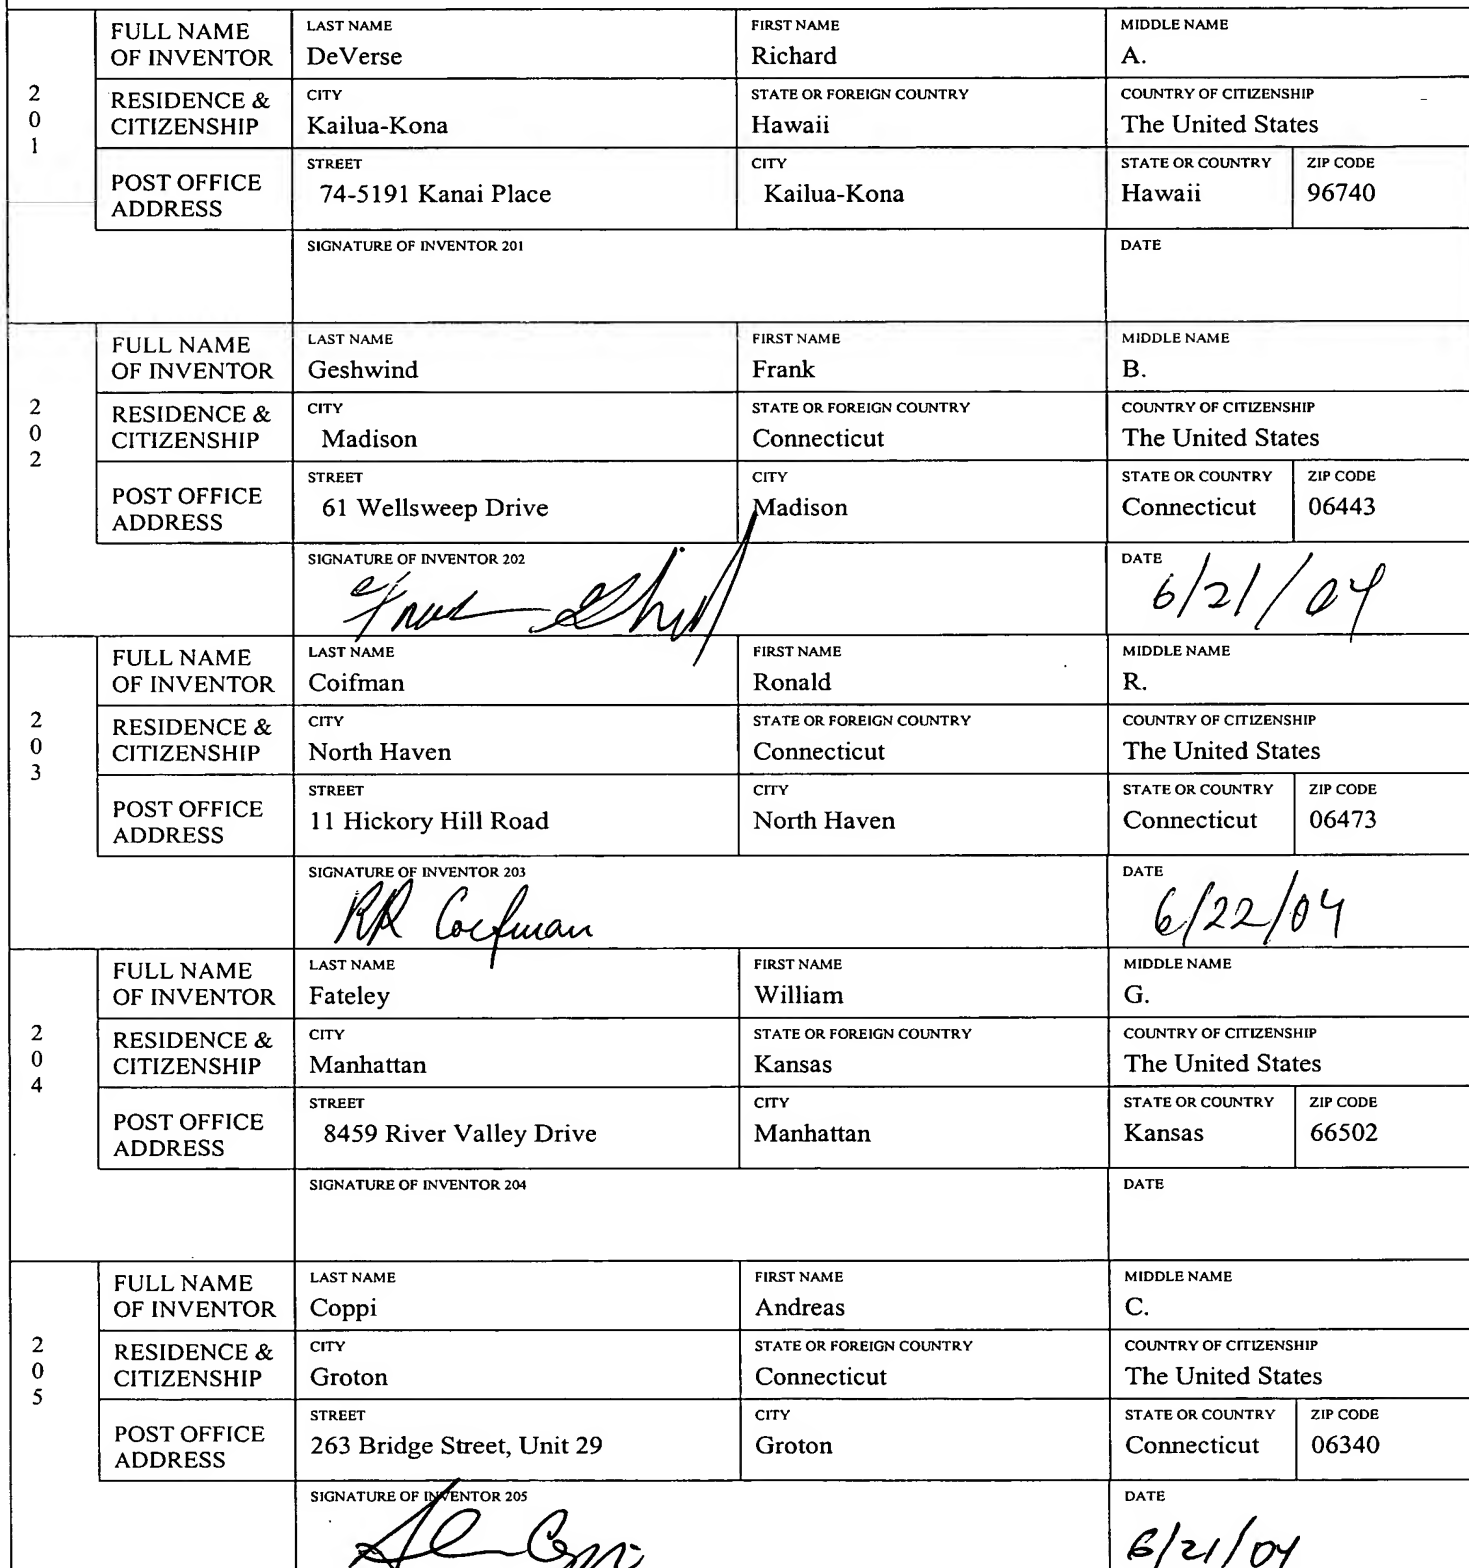 FULL NAME OF INVENTOR
LAST NAME
DeVerse
FIRST NAME
Richard
MIDDLE NAME
A.
201
RESIDENCE & CITIZENSHIP
CITY
Kailua-Kona
STATE OR FOREIGN COUNTRY
Hawaii
COUNTRY OF CITIZENSHIP
The United States
POST OFFICE ADDRESS
STREET
74-5191 Kanai Place
CITY
Kailua-Kona
STATE OR COUNTRY
Hawaii
ZIP CODE
96740
SIGNATURE OF INVENTOR 201
DATE
FULL NAME OF INVENTOR
LAST NAME
Geshwind
FIRST NAME
Frank
MIDDLE NAME
B.
202
RESIDENCE & CITIZENSHIP
CITY
Madison
STATE OR FOREIGN COUNTRY
Connecticut
COUNTRY OF CITIZENSHIP
The United States
POST OFFICE ADDRESS
STREET
61 Wellsweep Drive
CITY
Madison
STATE OR COUNTRY
Connecticut
ZIP CODE
06443
SIGNATURE OF INVENTOR 202
DATE
6/21/04
FULL NAME OF INVENTOR
LAST NAME
Coifman
FIRST NAME
Ronald
MIDDLE NAME
R.
203
RESIDENCE & CITIZENSHIP
CITY
North Haven
STATE OR FOREIGN COUNTRY
Connecticut
COUNTRY OF CITIZENSHIP
The United States
POST OFFICE ADDRESS
STREET
11 Hickory Hill Road
CITY
North Haven
STATE OR COUNTRY
Connecticut
ZIP CODE
06473
SIGNATURE OF INVENTOR 203
RR Coifman
DATE
6/22/04
FULL NAME OF INVENTOR
LAST NAME
Fateley
FIRST NAME
William
MIDDLE NAME
G.
204
RESIDENCE & CITIZENSHIP
CITY
Manhattan
STATE OR FOREIGN COUNTRY
Kansas
COUNTRY OF CITIZENSHIP
The United States
POST OFFICE ADDRESS
STREET
8459 River Valley Drive
CITY
Manhattan
STATE OR COUNTRY
Kansas
ZIP CODE
66502
SIGNATURE OF INVENTOR 204
DATE
FULL NAME OF INVENTOR
LAST NAME
Coppi
FIRST NAME
Andreas
MIDDLE NAME
C.
205
RESIDENCE & CITIZENSHIP
CITY
Groton
STATE OR FOREIGN COUNTRY
Connecticut
COUNTRY OF CITIZENSHIP
The United States
POST OFFICE ADDRESS
STREET
263 Bridge Street, Unit 29
CITY
Groton
STATE OR COUNTRY
Connecticut
ZIP CODE
06340
SIGNATURE OF INVENTOR 205
DATE
6/21/04